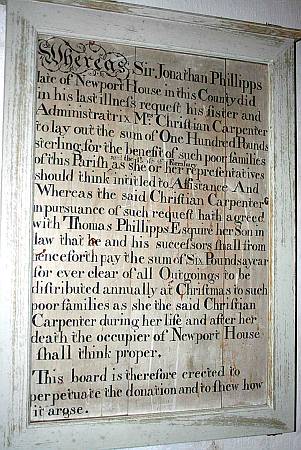 Whereas Sir Jonathan Phillipps
late of Newport House in this County did
in his last illness request his sister and
Administratrix Mrs Christian Carpenter
to lay out the sum of One Hundred Pounds
sterling for the benefit of such poor families
of this Parish as she or her representatives
should think intitled to Assistance And
Whereas the said Christian Carpenter
in pursuance of such request hath agreed
with Thomas Phillipps Esquire her Son in
law that he and his successors shall from
henceforth pay the sum of Six Pounds a year
for ever clear of all Outgoings to be
distributed annually at Christmas to such
poor families as she the said Christian
Carpenter during her life and after her
death the occupier of Newport House
shall think proper.
This board is therefore erected to
perpetuate the donation and to shew how
it arose.